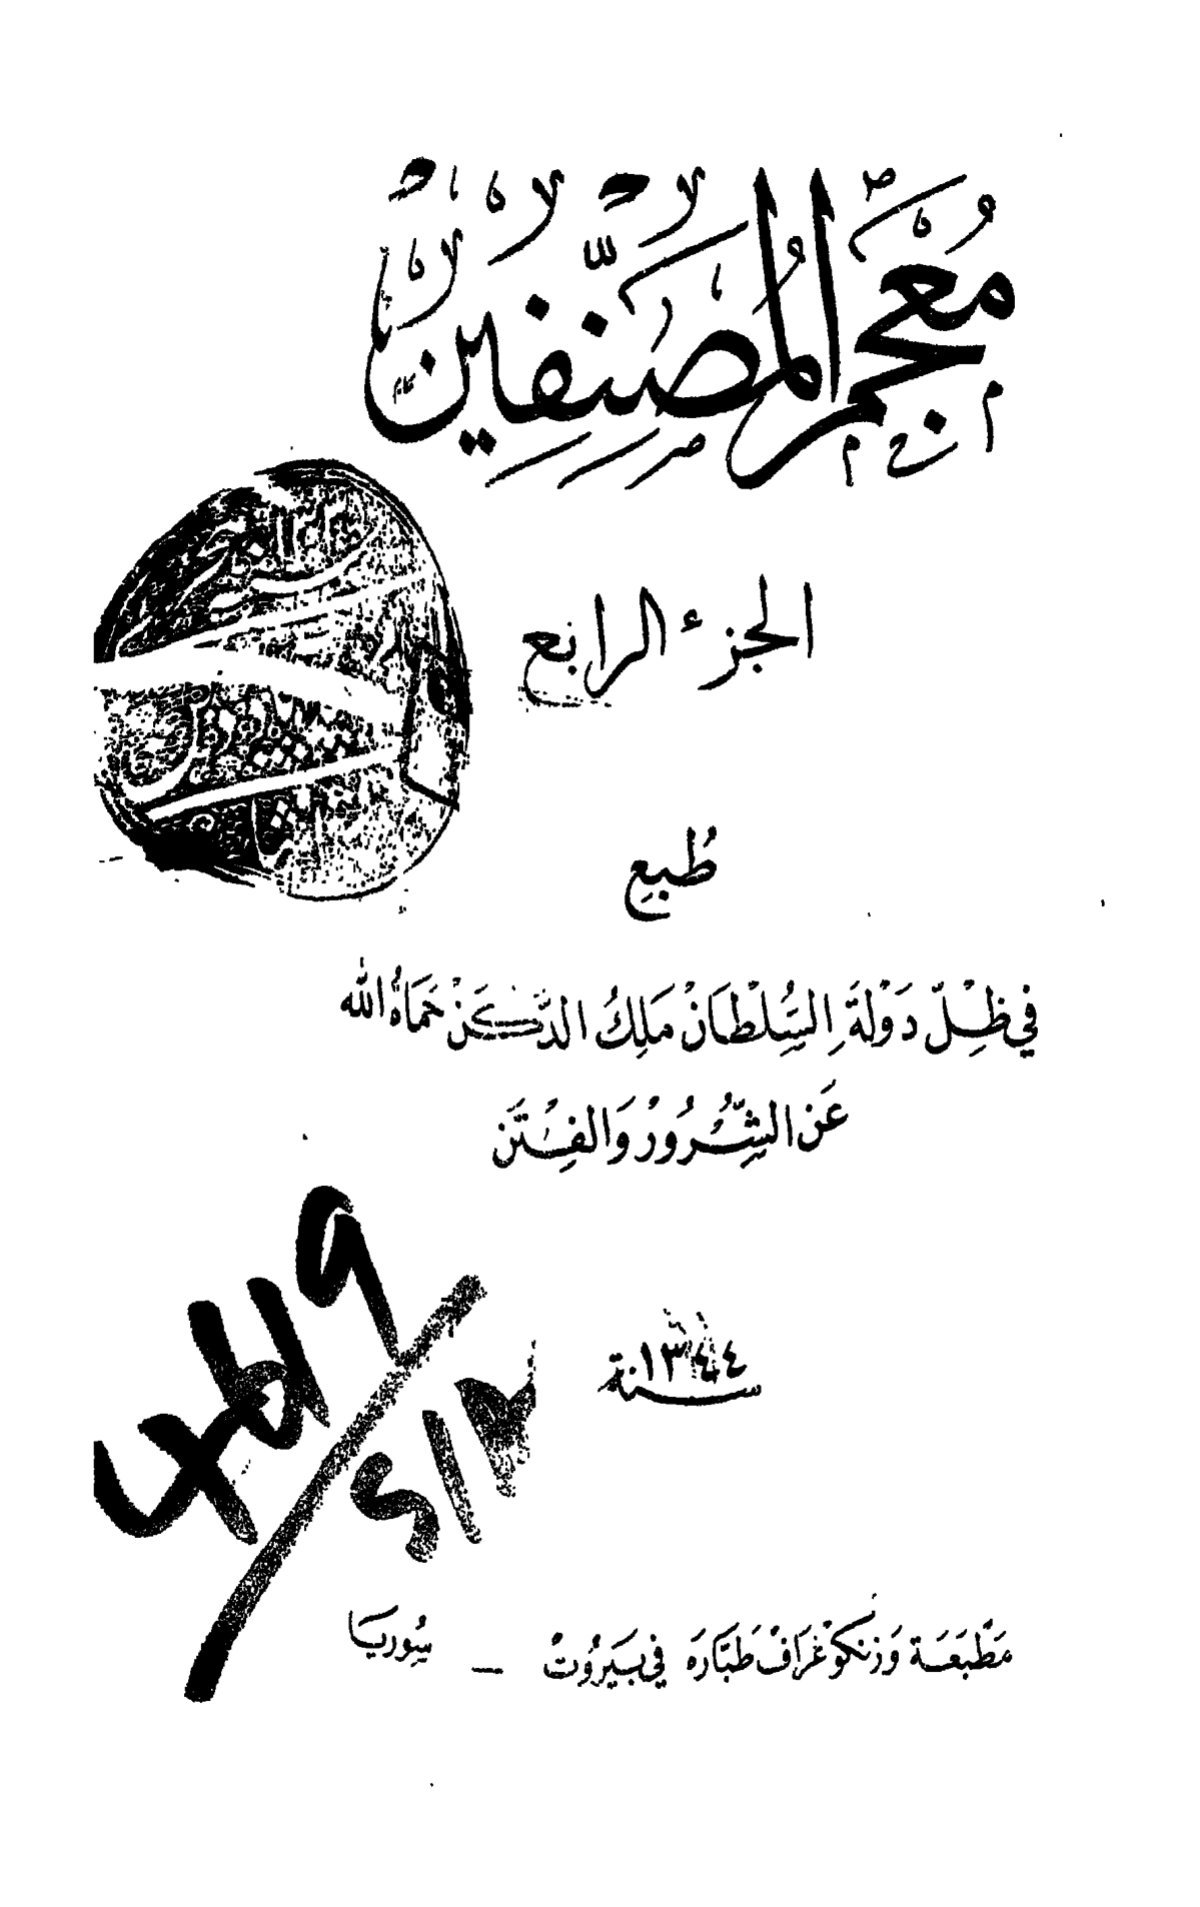 مُعْجَمُ الْمُصَنِّفِيْنَ
الجزء الرابع
طُبِعَ
فِي ظِلِّ دَوْلَةِ السُّلْطَانْ مَلِكُ الدَّكَنْ حَمَاهُ الله
عَنِ الشُّرُورْ وَالفِتَن
سنة ١٣٤٤
مَطْبَعَة وَزنكوغرَافْ طَبَّارَه فِي بَيرُوتْ — سُوريَا